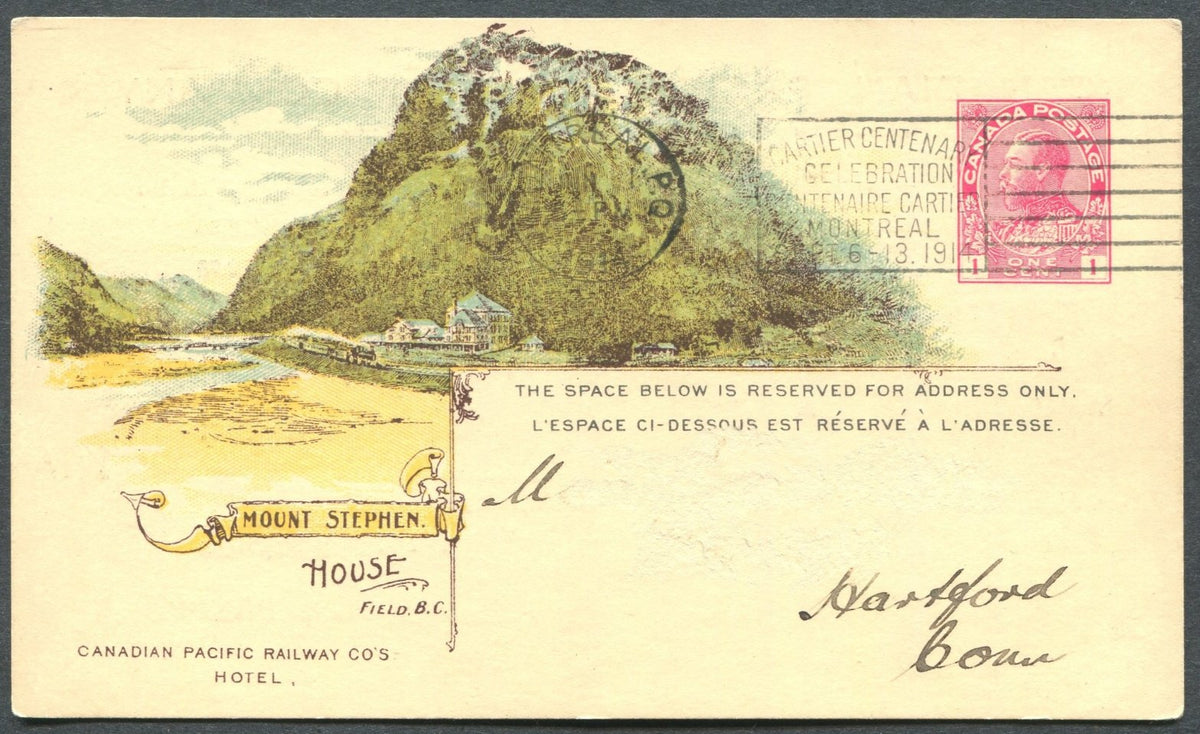 CANADA POSTAGE
1 ONE CENT 1
MONTREAL. P.Q.
PM
CARTIER CENTENARY
CELEBRATION
CENTENAIRE CARTIER
MONTREAL
SEPT. 6-13. 1914
THE SPACE BELOW IS RESERVED FOR ADDRESS ONLY.
L'ESPACE CI-DESSOUS EST RÉSERVÉ À L'ADRESSE.
M
Hartford
Conn
MOUNT STEPHEN.
HOUSE
FIELD, B.C.
CANADIAN PACIFIC RAILWAY CO'S
HOTEL.